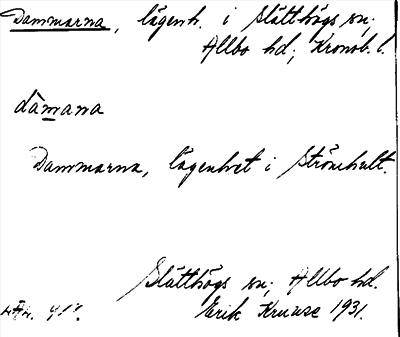 Dammarna, lägenh. i Slätthögs sn;
Allbo hd; Kronob. l.
dåmana
Dammarna, lägenhet i Strömhult.
Slätthögs sn; Allbo hd.
Erik Kruuse 1931.